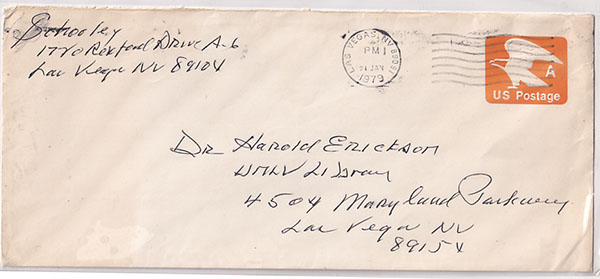 Schooley
1770 Rexford Drive A-6
Las Vegas NV 89104
LAS VEGAS, NV
PM
21 JAN
1979
A
US Postage
Dr Harold Erickson
UNLV Library
4504 Maryland Parkway
Las Vegas NV
89154